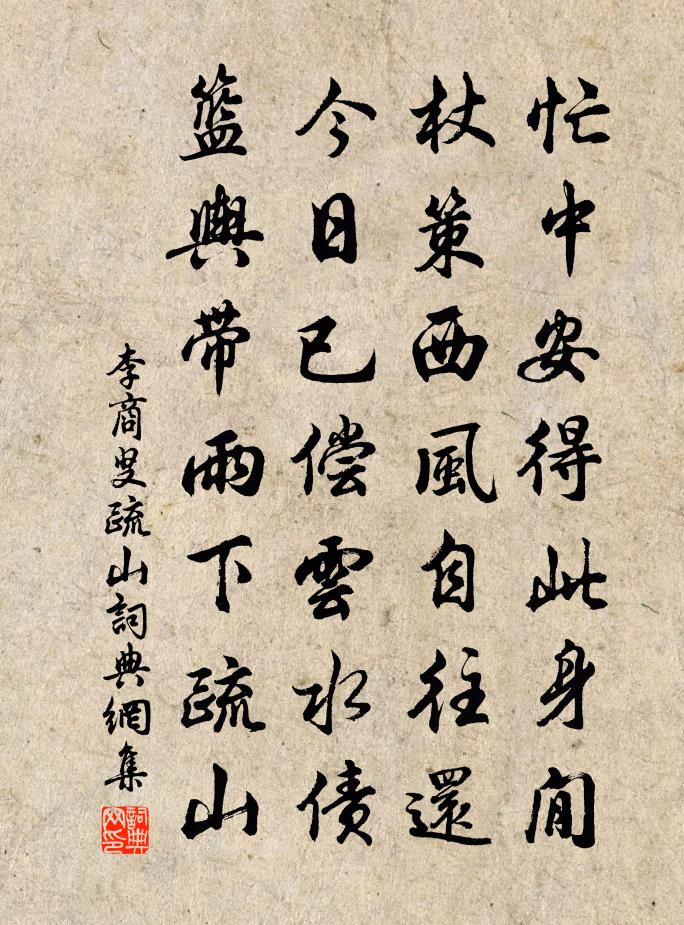 忙中安得此身閒
杖策西風自往還
今日已偿雲水债
籃輿帶雨下疏山
李商叟疏山詞典網集
詞典
网印